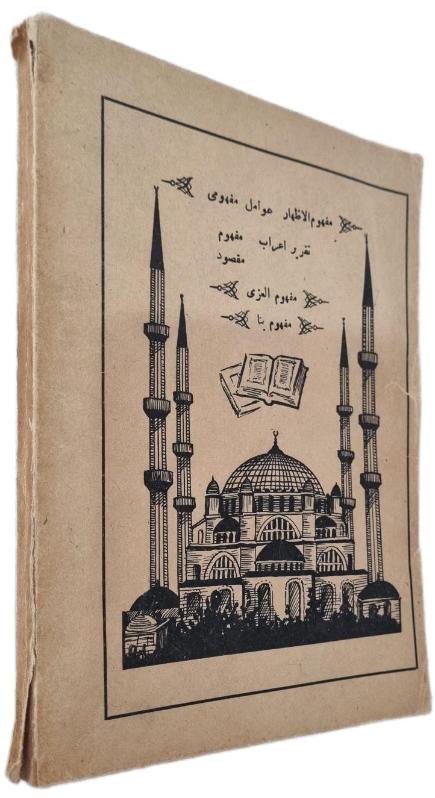 مفهوم الاظهار عوامل مفهومى
تقرير اعراب مفهوم
مقصود
مفهوم العزى
مفهوم بنا